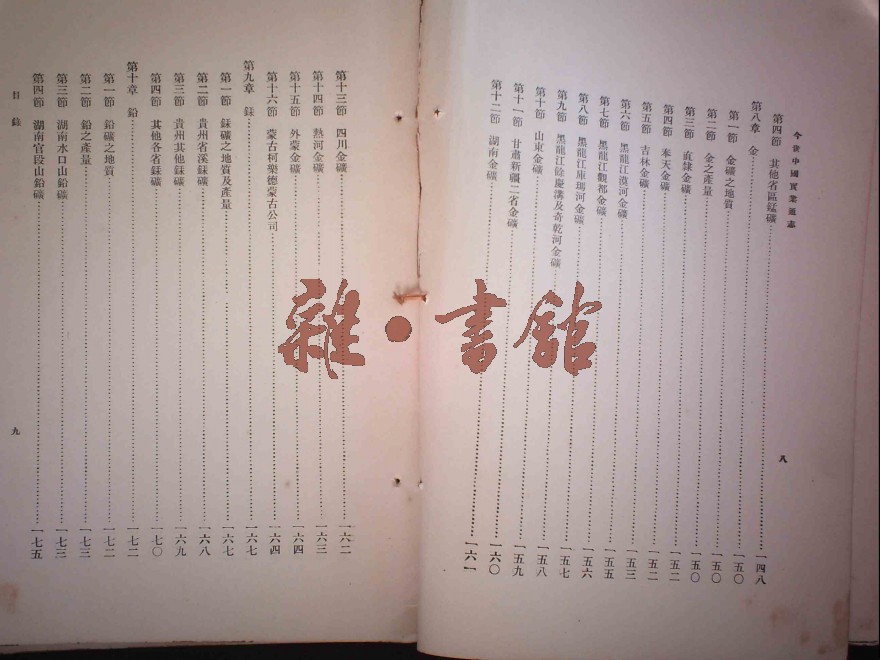 今世中國實業通志
第四節 其他省區錳礦……一四八
第八章 金……一五〇
第一節 金礦之地質……一五〇
第二節 金之產量……一五〇
第三節 直隸金礦……一五二
第四節 奉天金礦……一五二
第五節 吉林金礦……一五三
第六節 黑龍江漠河金礦……一五五
第七節 黑龍江觀都金礦……一五六
第八節 黑龍江庫瑪河金礦……一五七
第九節 黑龍江餘慶溝及奇乾河金礦……一五八
第十節 山東金礦……一五九
第十一節 甘肅新疆二省金礦……一六〇
第十二節 湖南金礦……一六一
八
第十三節 四川金礦……一六二
第十四節 熱河金礦……一六三
第十五節 外蒙金礦……一六四
第十六節 蒙古柯樂德蒙古公司……一六四
第九章 銾……一六七
第一節 銾礦之地質及產量……一六七
第二節 貴州省溪銾礦……一六八
第三節 貴州其他銾礦……一六九
第四節 其他各省銾礦……一七〇
第十章 鉛……一七二
第一節 鉛礦之地質……一七二
第二節 鉛之產量……一七三
第三節 湖南水口山鉛礦……一七三
第四節 湖南官段山鉛礦……一七五
目錄
九
雜·書館